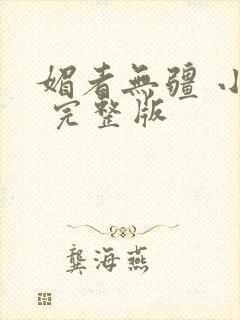 媚者無疆 小
完整版
龔海燕